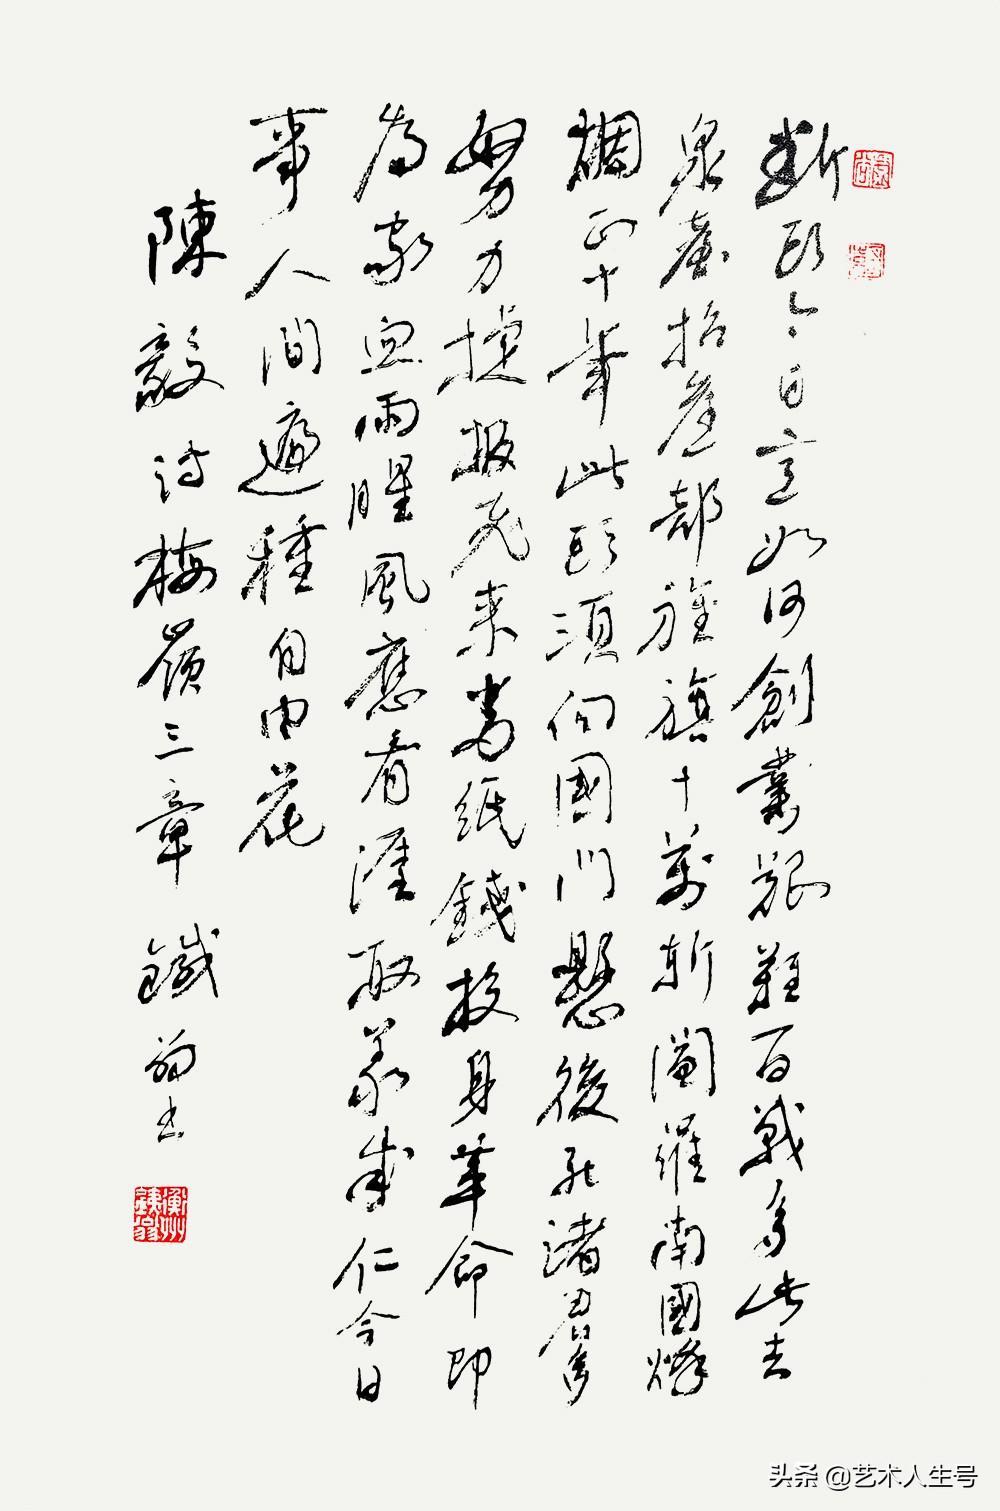 斷頭今日意如何創業艱難百戰多此去
泉臺招舊部旌旗十萬斬閻羅南國烽
烟正十年此頭須向國門懸後死諸君多
努力捷報飛來當紙錢投身革命即
為家血雨腥風應有涯取義成仁今日
事人間遍種自由花
陳毅詩梅嶺三章 鐵翁書
衡州鐵翁
头条 @艺术人生号